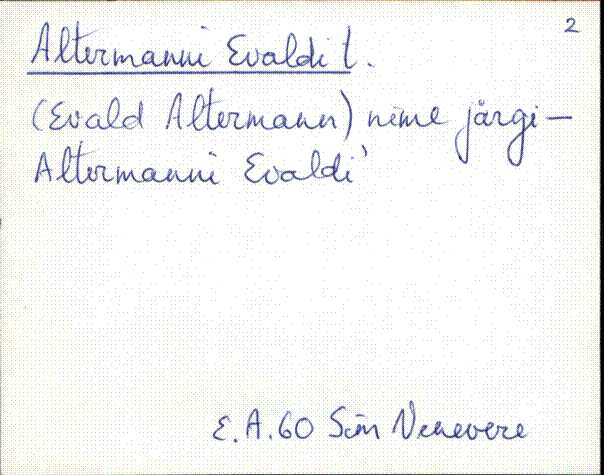 2
Altermanni Evaldi t.
(Evald Altermann) nime järgi —
Altermanni Evaldi'
E.A.60 Sim Venevere